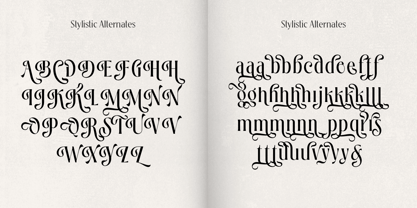 Stylistic Alternates
ABCDDEFGHH
IJKKLMMNN
OPQRSTUVV
WXYZZ
Stylistic Alternates
aaabbbcddceff
gghhhhijkkkklll
mmmnnn ppqrfs
tttuuvxyy&